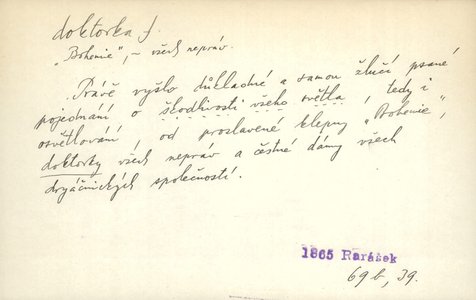 doktorka f.
"Bohemie", – všech nepráv.
Právě vyšlo důkladné a samou žlučí psané
pojednání o škodlivosti všeho světla, tedy i
osvětlování, od proslavené klepny "Bohemie",
doktorky všech nepráv a čestné dámy všech
dryáčnických společností.
1865 Rarášek
69b, 39.